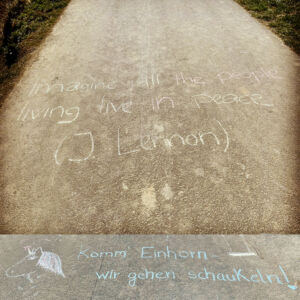 Imagine all the people
living live in peace
(J. Lennon)
Komm' Einhorn
wir gehen schaukeln!